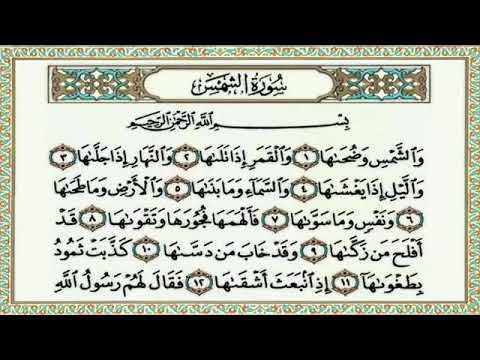 سُورَةُ الشَّمْسِ
بِسْمِ ٱللَّهِ ٱلرَّحْمَٰنِ ٱلرَّحِيمِ
وَٱلشَّمْسِ وَضُحَىٰهَا ١ وَٱلْقَمَرِ إِذَا تَلَىٰهَا ٢ وَٱلنَّهَارِ إِذَا جَلَّىٰهَا ٣
وَٱلَّيْلِ إِذَا يَغْشَىٰهَا ٤ وَٱلسَّمَآءِ وَمَا بَنَىٰهَا ٥ وَٱلْأَرْضِ وَمَا طَحَىٰهَا
٦ وَنَفْسٍ وَمَا سَوَّىٰهَا ٧ فَأَلْهَمَهَا فُجُورَهَا وَتَقْوَىٰهَا ٨ قَدْ
أَفْلَحَ مَن زَكَّىٰهَا ٩ وَقَدْ خَابَ مَن دَسَّىٰهَا ١٠ كَذَّبَتْ ثَمُودُ
بِطَغْوَىٰهَآ ١١ إِذِ ٱنۢبَعَثَ أَشْقَىٰهَا ١٢ فَقَالَ لَهُمْ رَسُولُ ٱللَّهِ